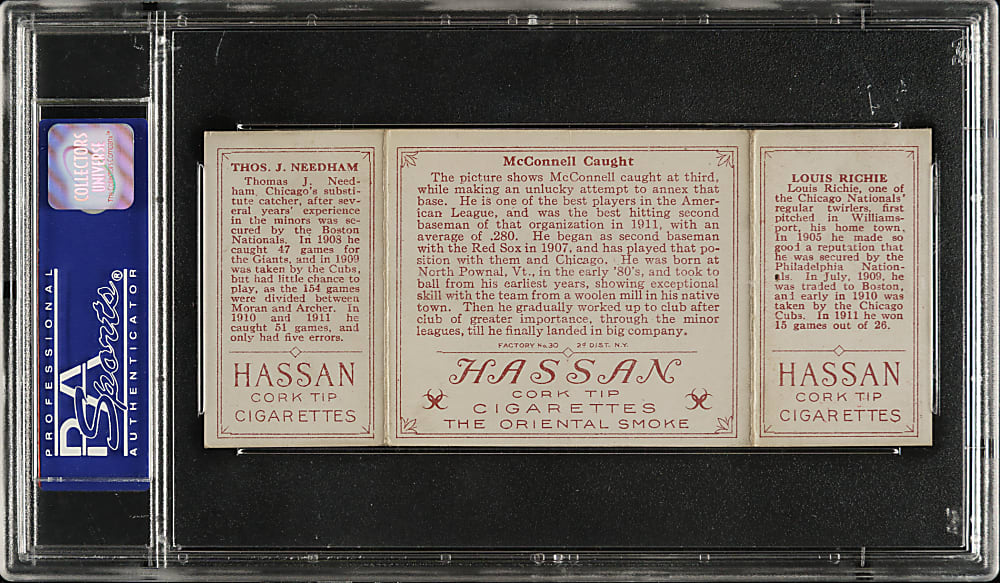 COLLECTORS
UNIVERSE
PROFESSIONAL
PSA
Sports®
AUTHENTICATOR
THOS. J. NEEDHAM
Thomas J. Need-
ham, Chicago's substi-
tute catcher, after sev-
eral years' experience
in the minors was se-
cured by the Boston
Nationals. In 1908 he
caught 47 games for
the Giants, and in 1909
was taken by the Cubs,
but had little chance to
play, as the 154 games
were divided between
Moran and Archer. In
1910 and 1911 he
caught 51 games, and
only had five errors.
HASSAN
CORK TIP
CIGARETTES
McConnell Caught
The picture shows McConnell caught at third,
while making an unlucky attempt to annex that
base. He is one of the best players in the Amer-
ican League, and was the best hitting second
baseman of that organization in 1911, with an
average of .280. He began as second baseman
with the Red Sox in 1907, and has played that po-
sition with them and Chicago. He was born at
North Pownal, Vt., in the early '80's, and took to
ball from his earliest years, showing exceptional
skill with the team from a woolen mill in his native
town. Then he gradually worked up to club after
club of greater importance, through the minor
leagues, till he finally landed in big company.
FACTORY No. 30 2d DIST. N.Y.
HASSAN
CORK TIP
CIGARETTES
THE ORIENTAL SMOKE
LOUIS RICHIE
Louis Richie, one of
the Chicago Nationals'
regular twirlers, first
pitched in Williams-
port, his home town.
In 1905 he made so
good a reputation that
he was secured by the
Philadelphia Nation-
als. In July, 1909, he
was traded to Boston,
and early in 1910 was
taken by the Chicago
Cubs. In 1911 he won
15 games out of 26.
HASSAN
CORK TIP
CIGARETTES